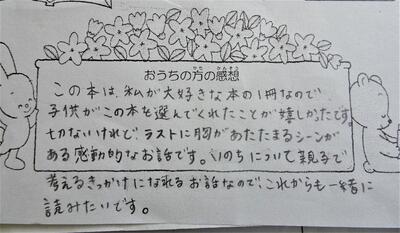 おうちの方の感想
この本は、私が大好きな本の1冊なので、
子供がこの本を選んでくれたことが嬉しかったです。
切ないけれど、ラストに胸があたたまるシーンが
ある感動的なお話です。いのちについて親子で
考えるきっかけになれるお話なので、これからも一緒に
読みたいです。